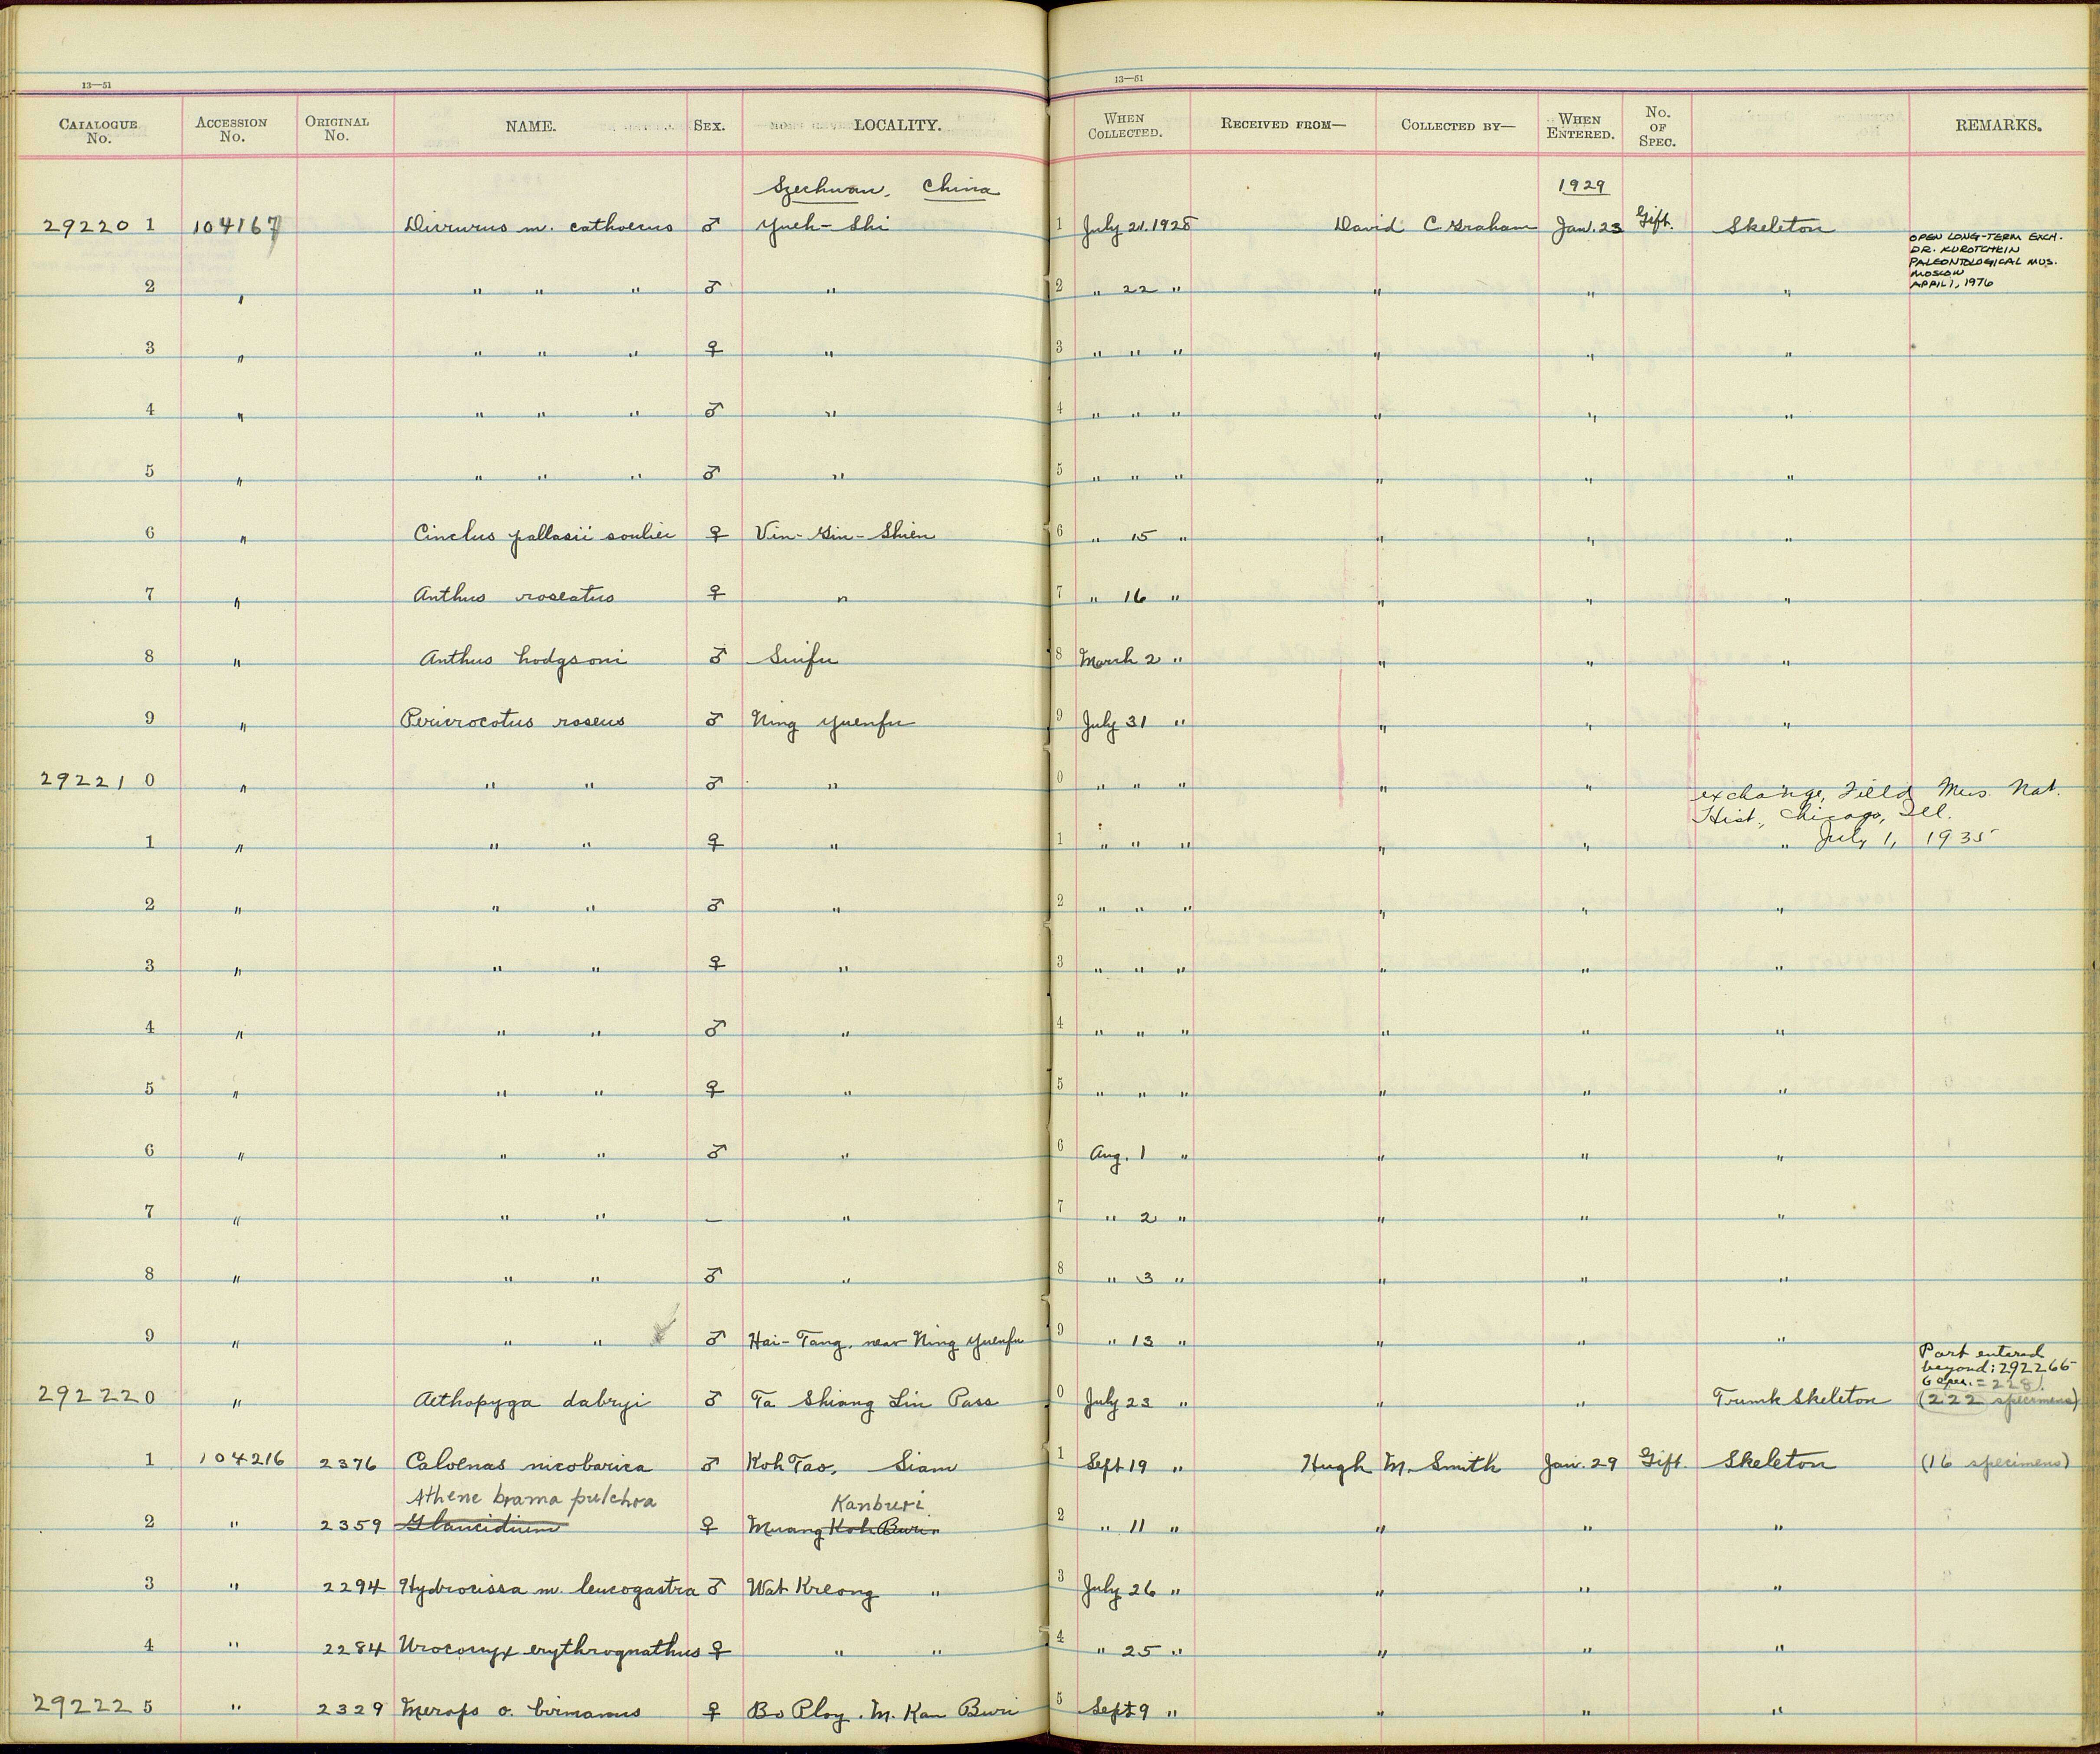 13—51 13—51
CATALOGUE No. ACCESSION No. ORIGINAL No. NAME. SEX. LOCALITY. WHEN COLLECTED. RECEIVED FROM— COLLECTED BY— WHEN ENTERED. No. OF SPEC. REMARKS.
Szechwan, China 1929
292201 104167 Dicrurus m. cathoecus ♂ Yueh-Shi 1 July 21. 1928 David C. Graham Jan. 23 Gift. Skeleton
OPEN LONG-TERM EXCH.
DR. KUROTCHKIN
PALEONTOLOGICAL MUS.
MOSCOW
APRIL 1, 1976
2 " " " " ♂ " 2 " 22 " " " "
3 " " " " ♀ " 3 " " " " " "
4 " " " " ♂ " 4 " " " " " "
5 " " " " ♂ " 5 " " " " " "
6 " Cinclus pallasii souliei ♀ Vin-Gin-Shien 6 " 15 " " " "
7 " Anthus roseatus ♀ " 7 " 16 " " " "
8 " Anthus hodgsoni ♂ Suifu 8 March 2 " " " "
9 " Pericrocotus roseus ♂ Ning Yuenfu 9 July 31 " " " "
292210 " " " ♂ " 0 " " " " "
exchange, Field Mus. Nat.
Hist., Chicago, Ill.
July 1, 1935
1 " " " ♀ " 1 " " " " " "
2 " " " ♂ " 2 " " " " " "
3 " " " ♀ " 3 " " " " " "
4 " " " ♂ " 4 " " " " " "
5 " " " ♀ " 5 " " " " " "
6 " " " ♂ " 6 Aug. 1 " " " "
7 " " " — " 7 " 2 " " " "
8 " " " ♂ " 8 " 3 " " " "
9 " " " ♂ Hai-Tang, near Ning Yuenfu 9 " 13 " " " "
Part entered
beyond: 292266
6 spec. = 228).
292220 " Aethopyga dabryi ♂ Ta Shiang Lin Pass 0 July 23 " " " Trunk Skeleton (222 specimens)
1 104216 2376 Caloenas nicobarica ♂ Koh Tao, Siam 1 Sept 19 " Hugh M. Smith Jan. 29 Gift. Skeleton (16 specimens)
Athene brama pulchra Kanburi
2 " 2359 Glaucidium ♀ Muang Koh Buri " 2 " 11 " " " "
3 " 2294 Hydrocissa m. leucogastra ♂ Wat Kreong " 3 July 26 " " " "
4 " 2284 Urococcyx erythrognathus ♀ " " 4 " 25 " " " "
292225 " 2329 Merops o. birmanus ♀ Bo Ploy. M. Kan Buri 5 Sept 9 " " " "